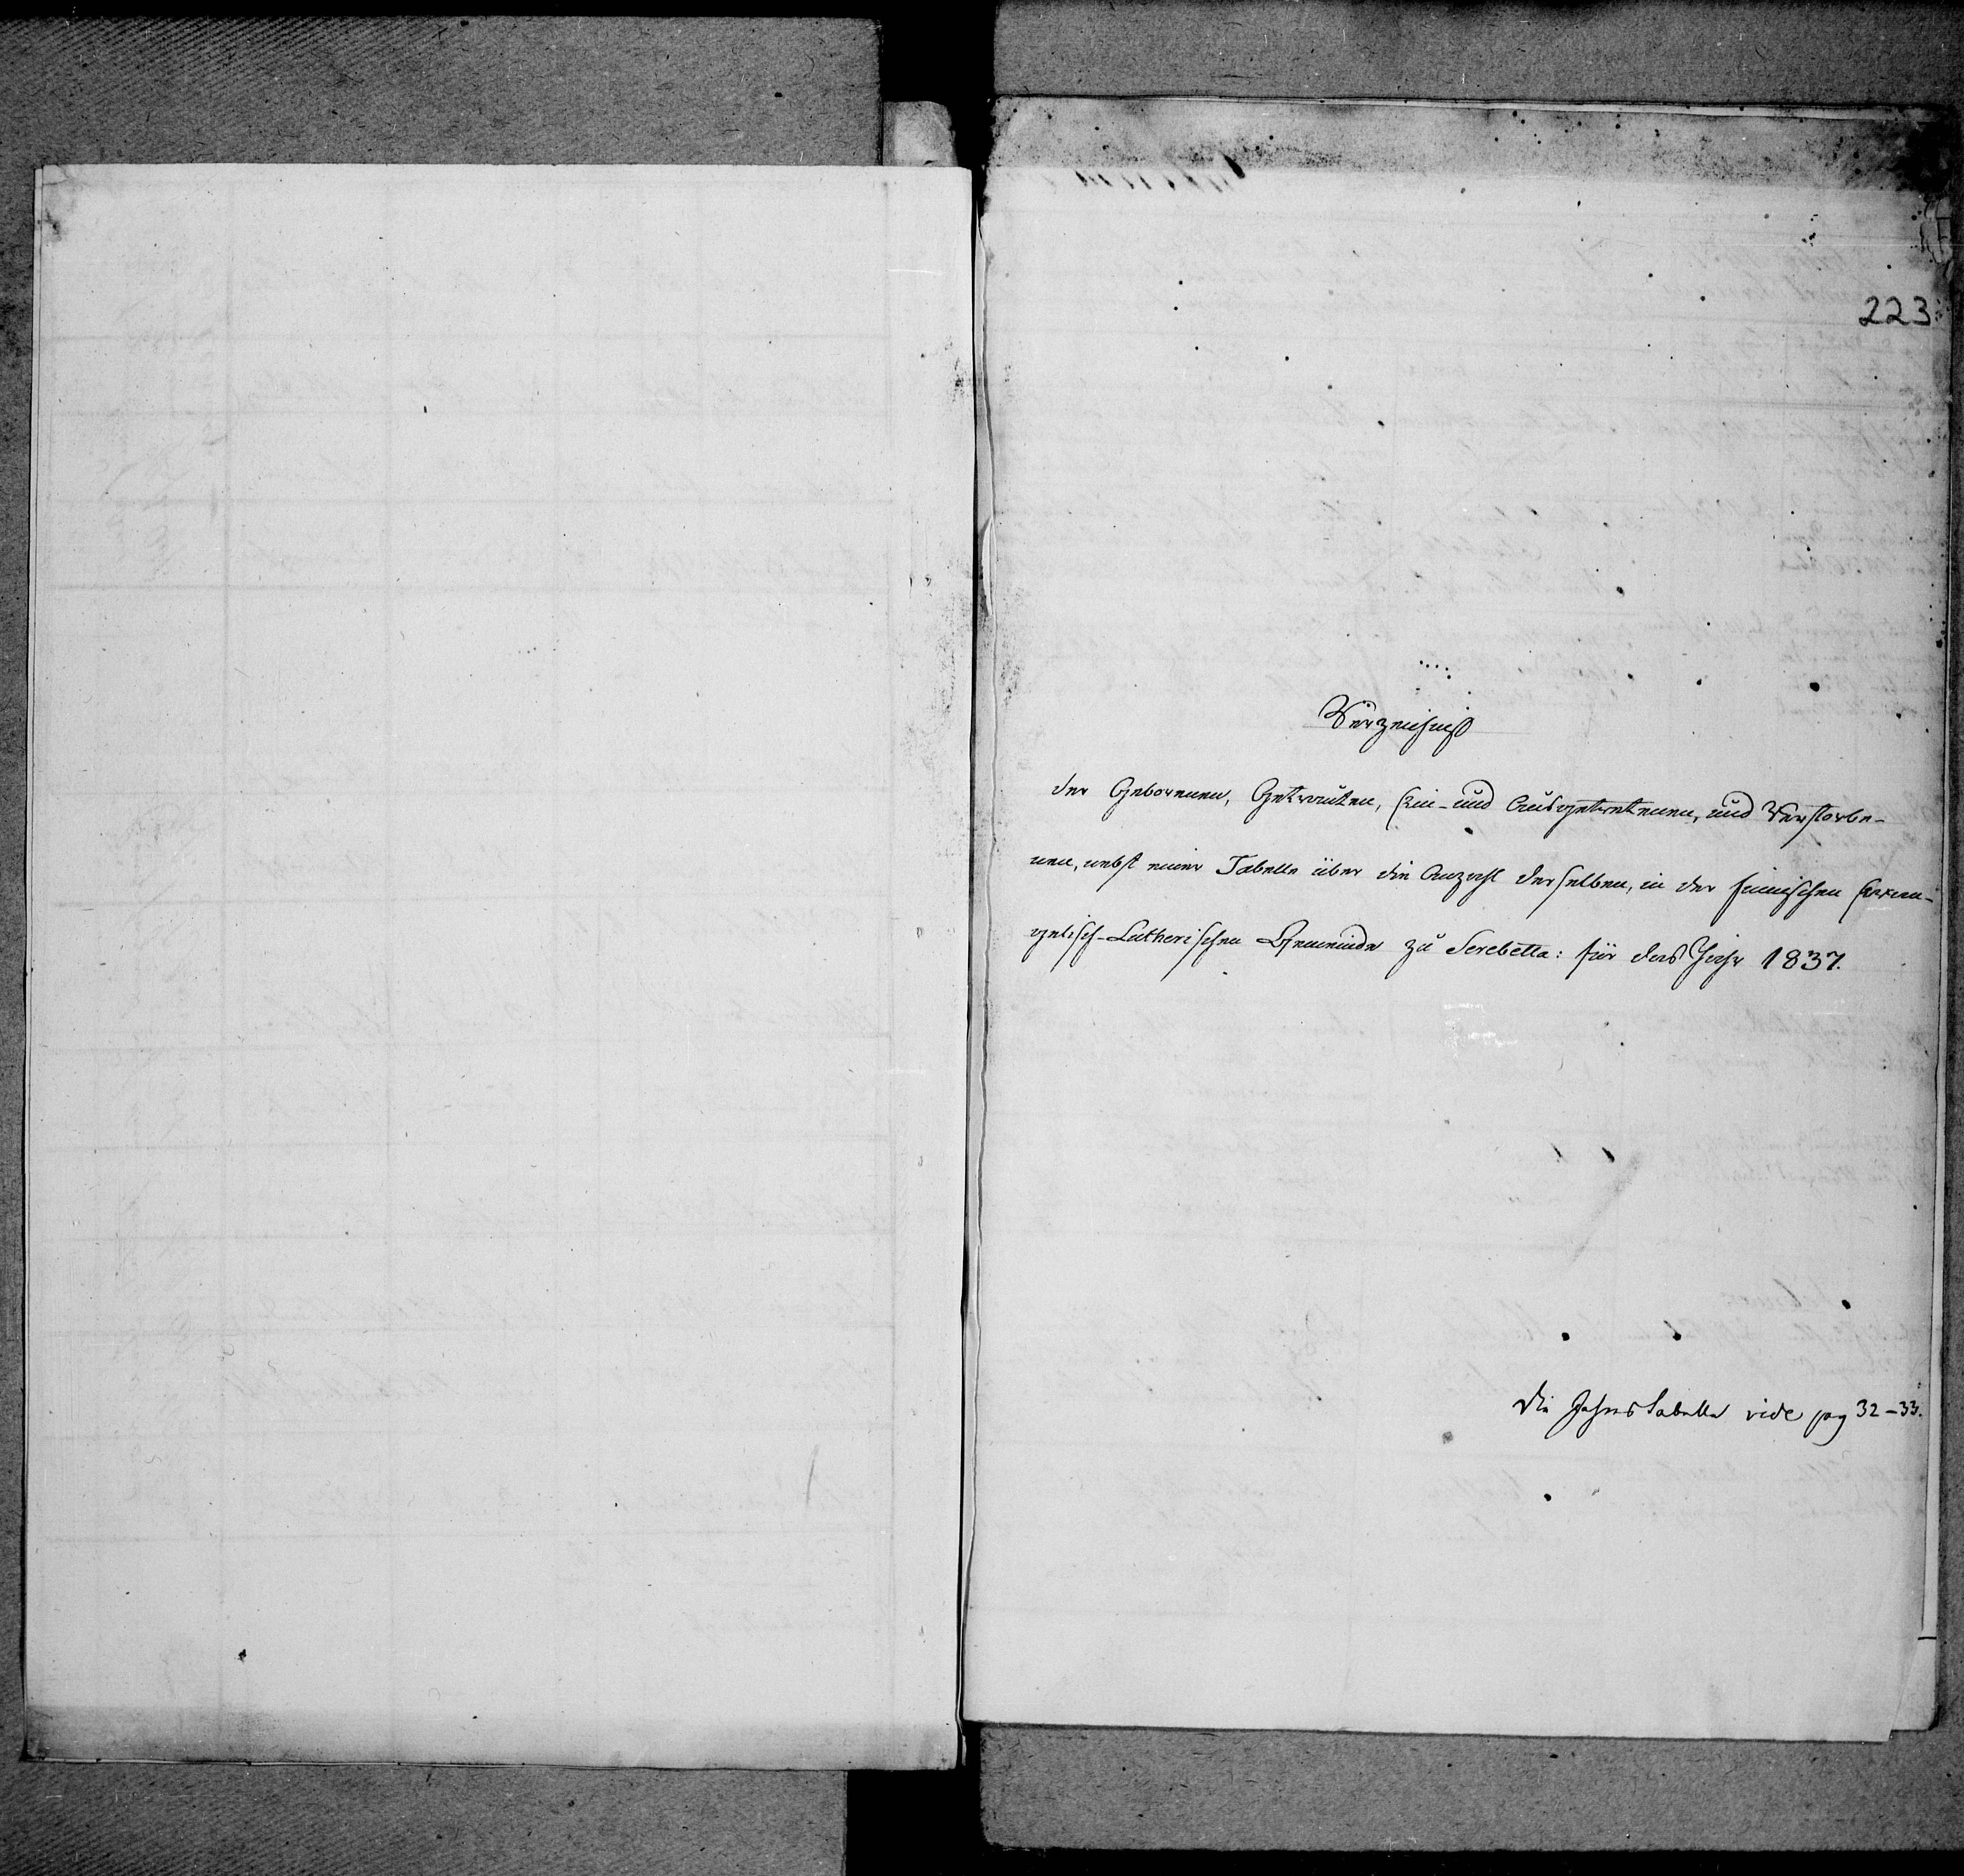 223
Verzeichniß
der Gebornenen, Getrauten, Ein- und Ausgetretenen, und Verstorbe-
nen, nebst einer Tabelle über die Anzahl derselben, in der finnischen Evan-
gelisch-Lutherischen Gemeinde zu Serebetta: für das Jahr 1837.
Die Jahres Tabelle vide pag 32-33.